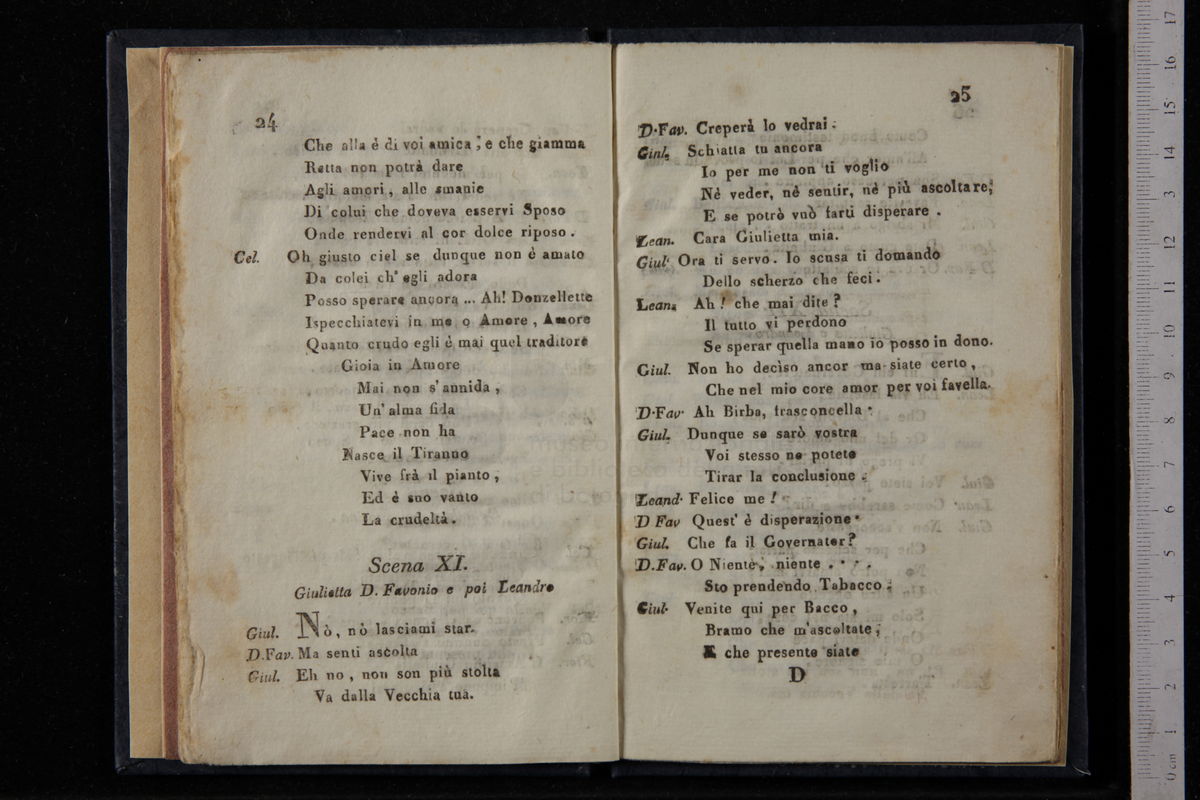 24
Che alla è di voi amica; e che giamma
Retta non potrà dare
Agli amori, alle smanie
Di colui che doveva esservi Sposo
Onde rendervi al cor dolce riposo.
Cel. Oh giusto ciel se dunque non è amato
Da colei ch' egli adora
Posso sperare ancora ... Ah! Donzellette
Ispecchiatevi in me o Amore, Amore
Quanto crudo egli è mai quel traditore
Gioia in Amore
Mai non s' annida,
Un' alma fida
Pace non ha
Nasce il Tiranno
Vive frà il pianto,
Ed è suo vanto
La crudeltà.
Scena XI.
Giulietta D. Favonio e poi Leandro
Giul. Nò, nò lasciami star.
D.Fav. Ma senti ascolta
Giul. Eh no, non son più stolta
Va dalla Vecchia tua.
25
D.Fav. Creperà lo vedrai.
Giul. Schiatta tu ancora
Io per me non ti voglio
Nè veder, nè sentir, nè più ascoltare;
E se potrò vuò farti disperare.
Lean. Cara Giulietta mia.
Giul. Ora ti servo. Io scusa ti domando
Dello scherzo che feci.
Lean. Ah! che mai dite?
Il tutto vi perdono
Se sperar quella mano io posso in dono.
Giul. Non ho deciso ancor ma siate certo,
Che nel mio core amor per voi favella.
D.Fav. Ah Birba, frasconcella.
Giul. Dunque se sarò vostra
Voi stesso ne potete
Tirar la conclusione.
Leand. Felice me!
D Fav Quest' è disperazione.
Giul. Che fa il Governator?
D.Fav. O Niente, niente ....
Sto prendendo Tabacco.
Giul. Venite qui per Bacco,
Bramo che m'ascoltate,
E che presente siate
D